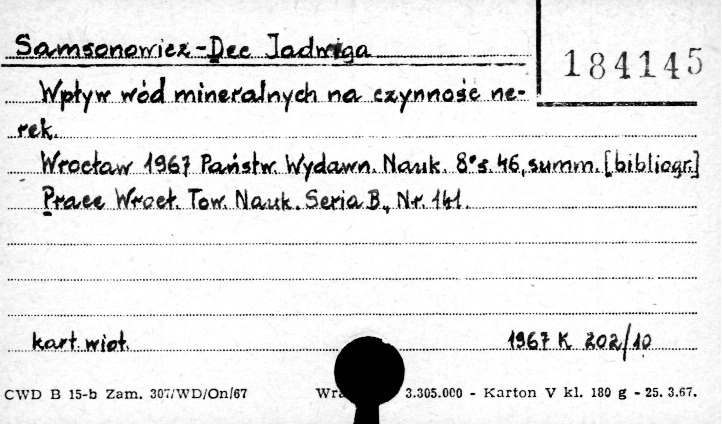 Samsonowicz-Dec Jadwiga
184145
Wpływ wód mineralnych na czynność ne-
rek.
Wrocław 1967 Państw. Wydawn. Nauk. 8° s. 46, summ. [bibliogr.]
Prace Wrocł. Tow. Nauk. Seria B., Nr. 141.
kart. wiot.
1967 K 202/10
CWD B 15-b Zam. 307/WD/On/67
3.305.000 - Karton V kl. 180 g - 25. 3.67.